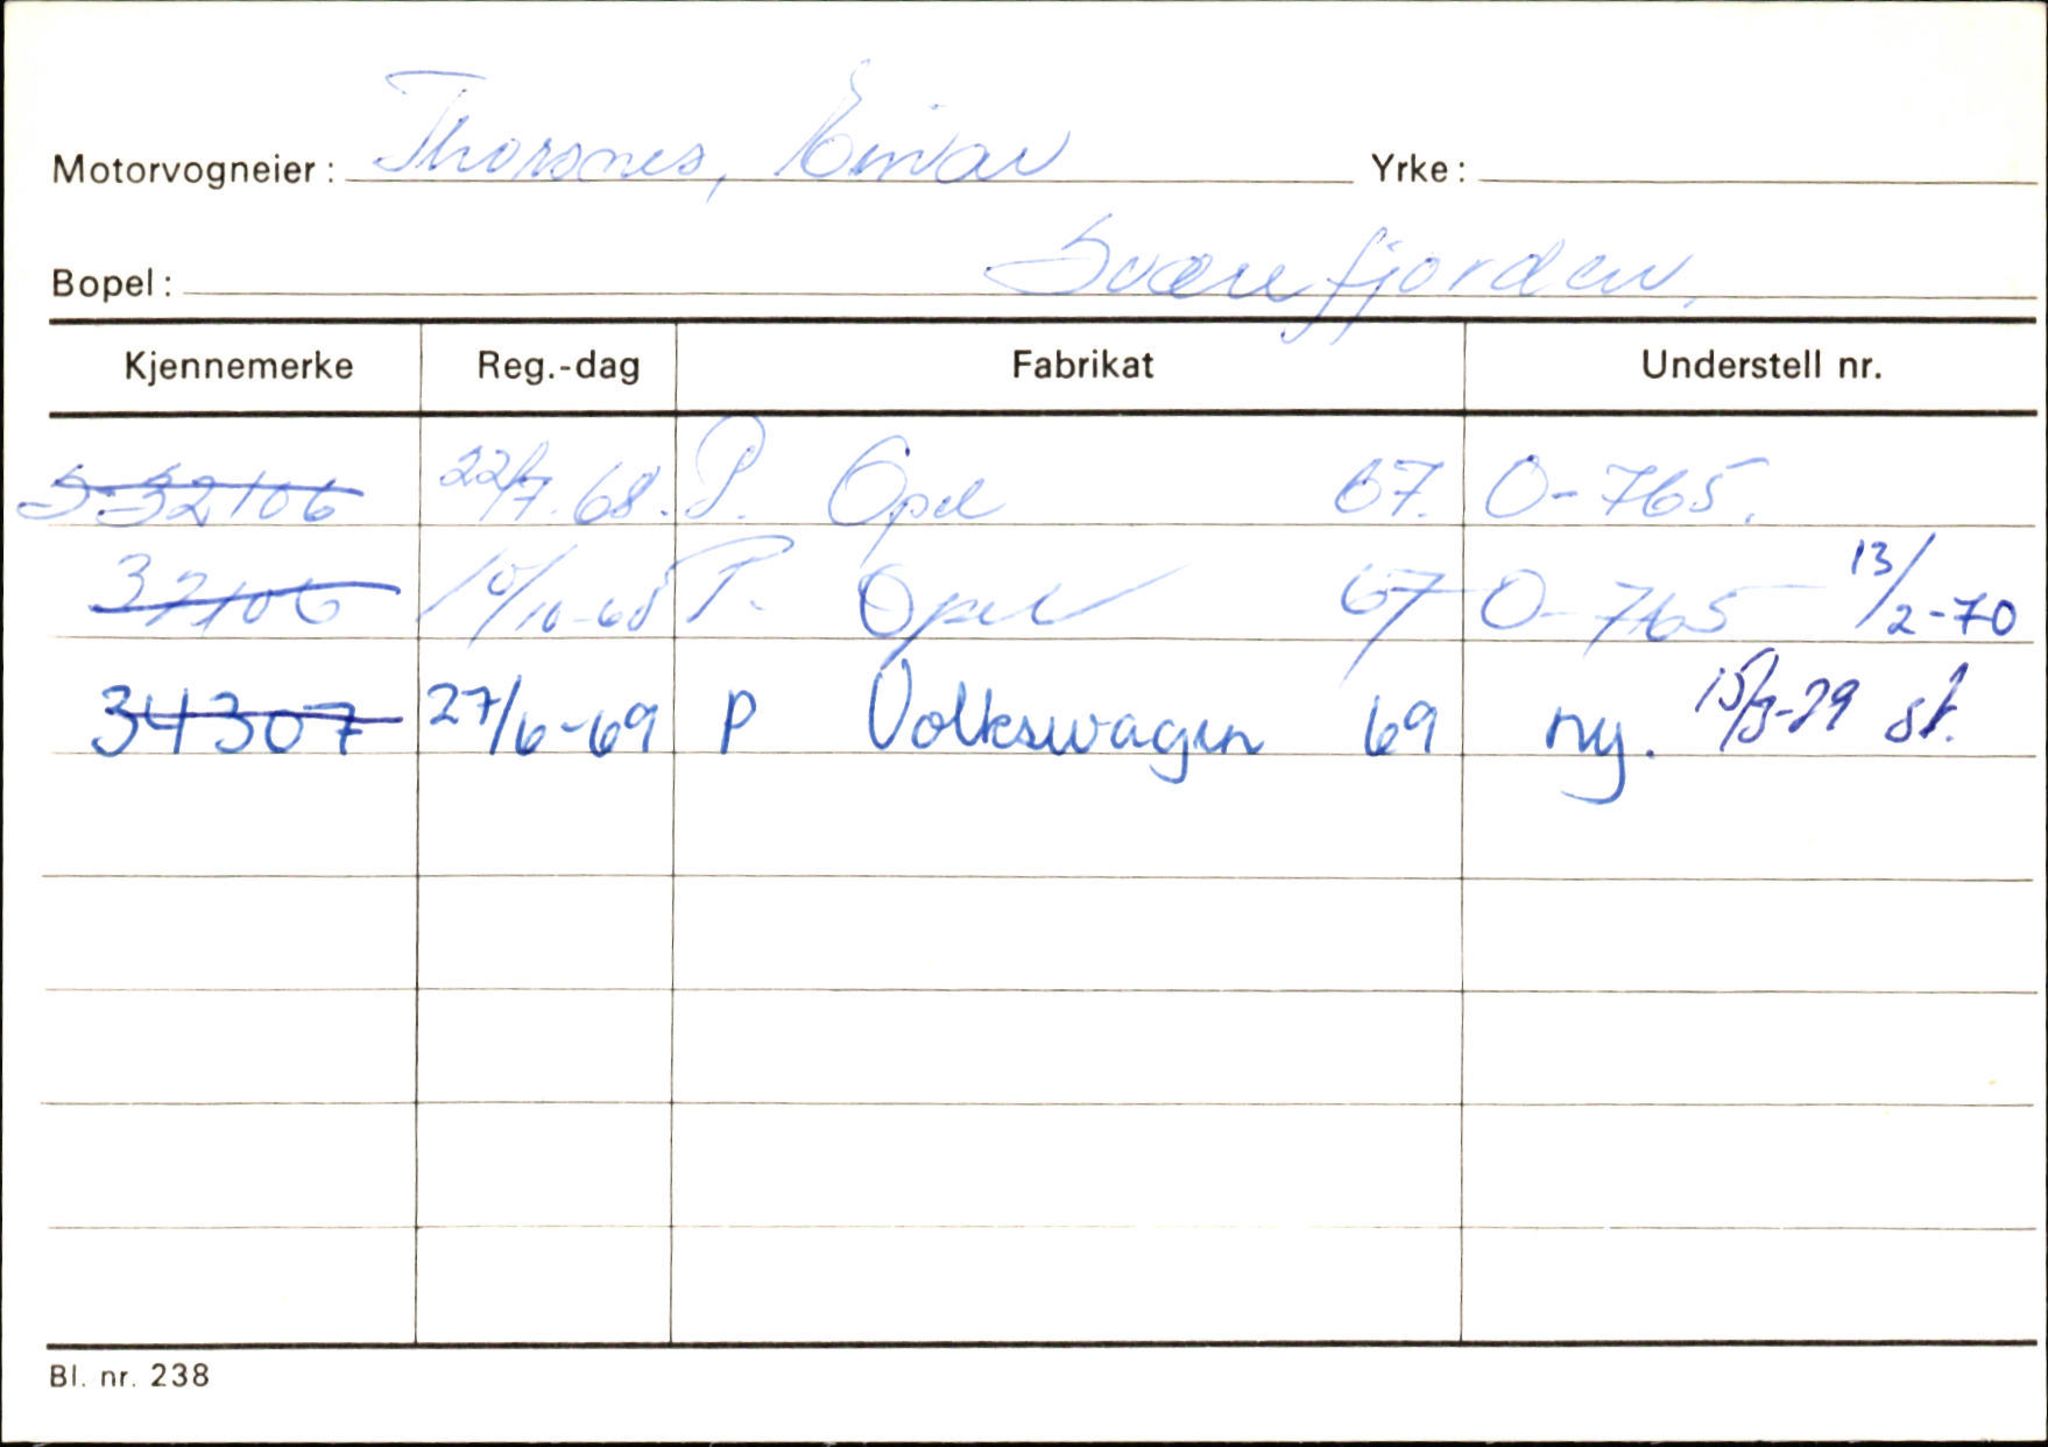 Motorvogneier: Thorsnes, Einar Yrke:
Bopel: Sværefjorden,
Kjennemerke Reg.-dag Fabrikat Understell nr.
S-32106 22/7.68. P. Opel 67. O-765.
32106 10/10-68 P. Opel 67 O-765 13/2-70
34307 27/6-69 P Volkswagen 69 ny. 15/3-79 st.
Bl. nr. 238